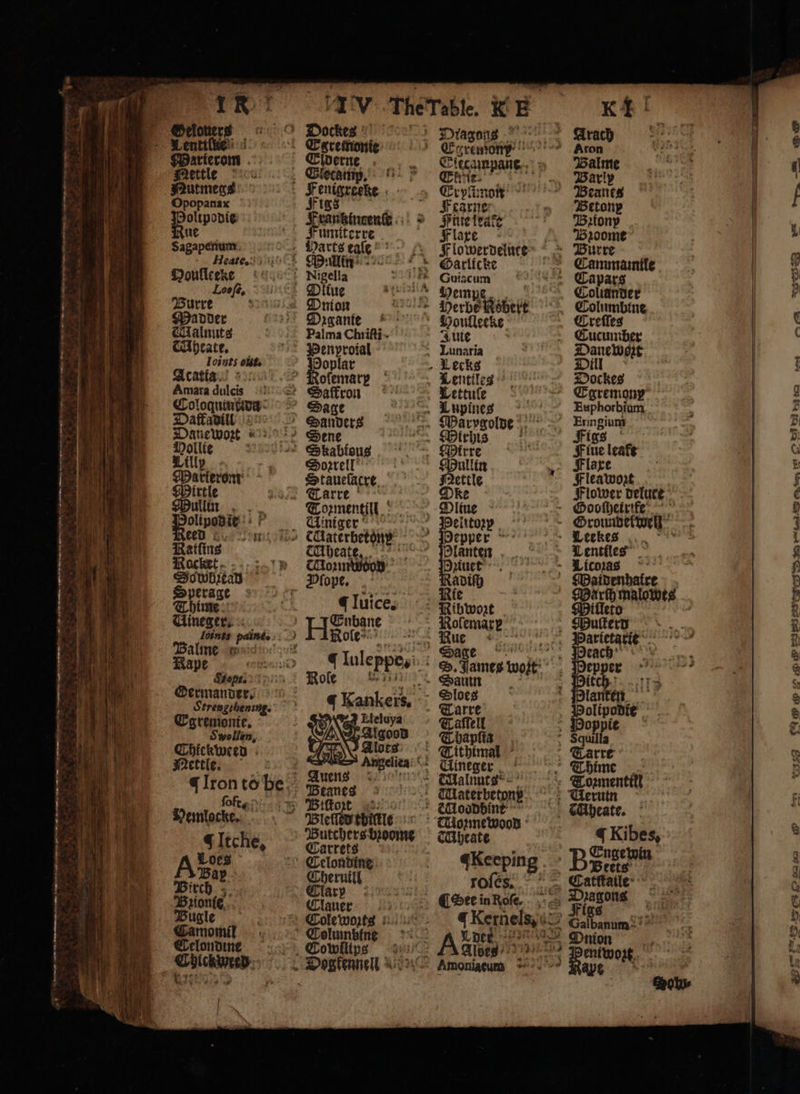 IR IV The Table. KE KI
Gelouers
Lentilke
Marierom
Nettle
Nutmegs
Opopanax
Polipodie
Rue
Sagapenum.
Heate,
Housleeke
Loose,
Burre
Madder
Walnuts
Wheate,
Ioints oute.
Acatia
Amara dulcis
Coloquintida
Daffadill
Danewort
Hollie
Lilly
Marierom
Mirtle
Mullin
Polipodie
Reed
Raisins
Rocket
Sowbread
Sperage
Thime
Uineger,
Ioints paine,
Balme
Rape
Stops.
Germander,
Strengthening.
Egremonie.
Swollen,
Chickweed
Nettle.
¶ Iron to be
soft.
Hemlocke.
¶ Itche,
Aloes
Bay
Birch
Brionie
Bugle
Camomil
Celondine
Chickweed
Dockes
Egremonie
Elderne
Elecamp,
Fenigreeke
Figs
Frankincense
Fumiterre
Harts ease
Mullin
Nigella
Oliue
Onion
Organie
Palma Christi
Penyroial
Poplar
Rosemary
Saffron
Sage
Sanders
Sene
Skabious
Sorrell
Stauesacre
Tarre
Tormentill
Uiniger
Waterbetony
Wheate,
Wormwood
Ysope.
¶ Iuice,
Henbane
Rose
¶ Iuleppe,
Rose
¶ Kankers,
Alleluya
Algood
Aloes
Angelica
Auens
Beanes
Bistort
Blessed thistle
Butchers broome
Carrets
Celondine
Cheruill
Clary
Clauer
Coleworts
Columbine
Cowslips
Dogfennell
Dragons
Egremony
Elecampane
Erysimon
Fearne
Fiue leafe
Flaxe
Flowerdeluce
Garlicke
Guiacum
Hempe
Herbe Robert
Housleeke
Iuie
Lunaria
Leeks
Lentiles
Lettuse
Lupines
Marygolde
Mirhis
Mirre
Mullin
Nettle
Oke
Oliue
Pelitory
Pepper
Planten
Priuet
Radish
Rie
Ribwort
Rosemary
Rue
Sage
S. James wort
Sauin
Sloes
Tarre
Tassell
Thapsia
Tithimal
Uineger
Walnuts
Waterbetony
Woodbine
Wormewood
Wheate
¶Keeping
roses,
¶ See in Rose.
¶ Kernels,
Aloe
Aloes
Amoniacum
Arach
Aron
Balme
Barly
Beanes
Betony
Briony
Broome
Burre
Cammamile
Capars
Coliander
Columbine
Cresses
Cucumber
Danewort
Dill
Dockes
Egremony
Euphorbium
Eringium
Figs
Fiue leafe
Flaxe
Fleawort
Flower deluce
Gooshetrife
Groundeswell
Leekes
Lentiles
Licoras
Maidenhaire
Marsh malowes
Misleto
Musterd
Parietarie
Peach
Pepper
Pitch
Planten
Polipodie
Poppie
Squilla
Tarre
Thime
Tormentill
Ueruin
Wheate.
¶ Kibes,
Engewin
Beets
Cattstaile
Dragons
Figs
Galbanum
Onion
Peniwort
Rape
Sow-